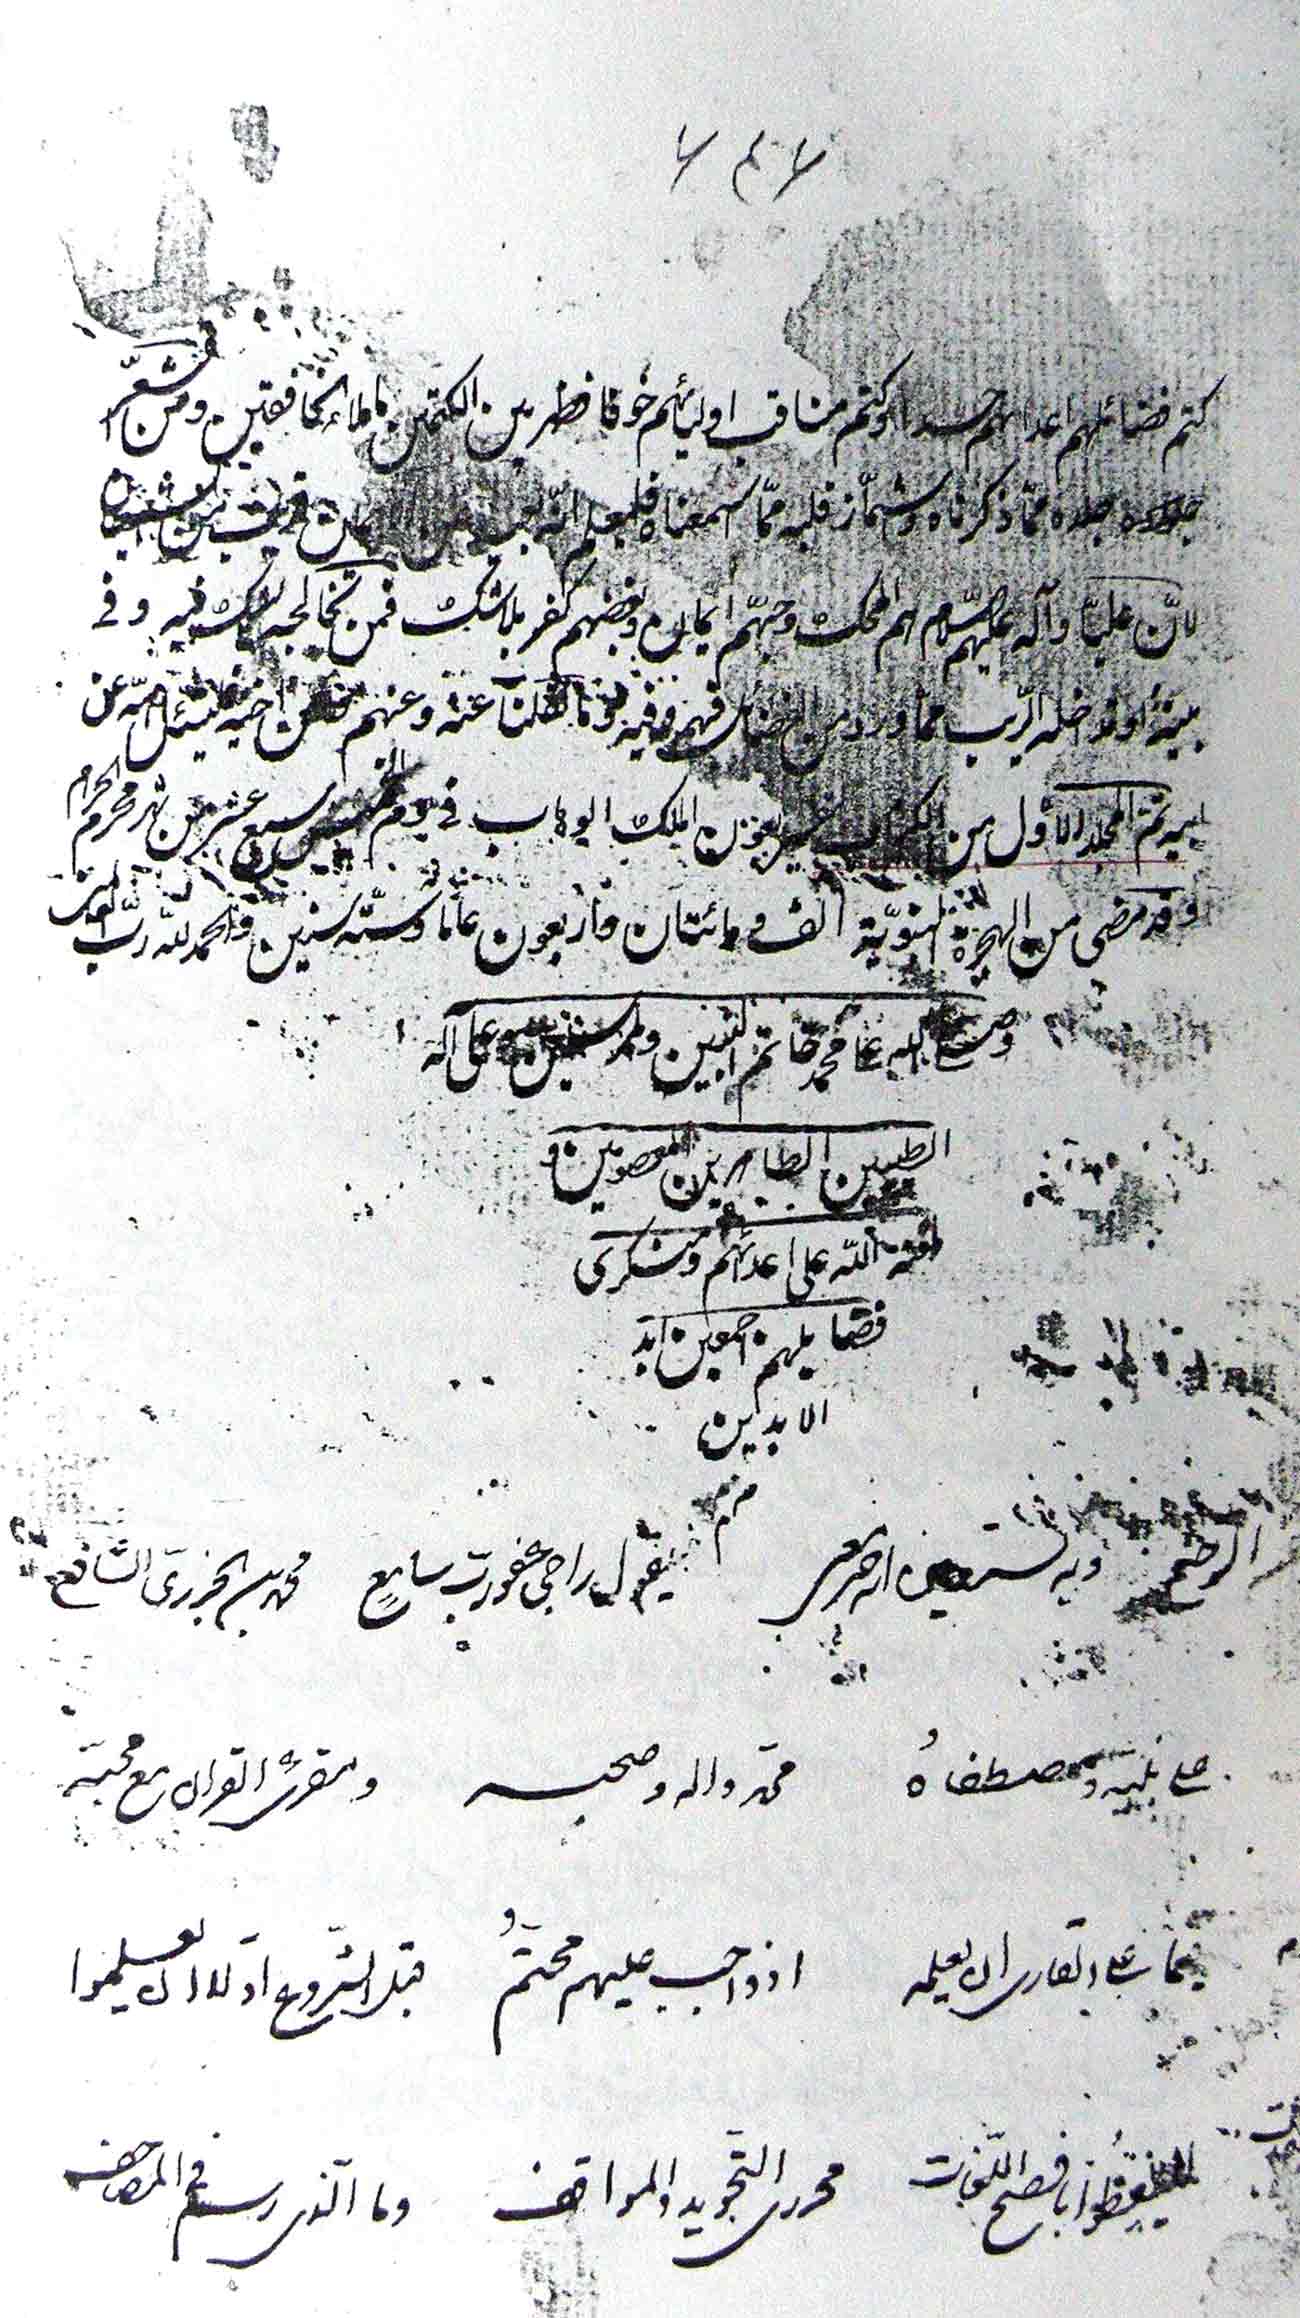 كتم فضائلهم اعدائهم حسدا وكتم مناقب اوليائهم خوفا فظهر بين الكتمين ما ملأ الخافقين ومن اقشعر
جلده مما ذكرناه واشمأز قلبه مما اسمعناه فليعلم انه بعيد من قريب من
لأن عليا وآله عليهم السلام هم المحك وحبهم ايمان وبغضهم كفر بلا شك فمن فيه وفي
او قد دخله الريب مما ورد من الفضائل فيهم وفيه نقلنا عنه وعنهم فليسئل امه عن
ابيه تم المجلد الاول من الكتاب بعون الملك الوهاب في يوم الخميس سبع عشر من شهر محرم الحرام
وقد مضى من الهجرة النبوية الف ومائتان واربعون عاما وستة سنين والحمد لله رب العالمين
وصلى الله على محمد خاتم النبيين والمرسلين وعلى آله
الطيبين الطاهرين المعصومين و
لعنة الله على اعدائهم ومنكرى
فضايلهم اجمعين ابد
الابدين
الرحيم وبه نستعين يقول راجى عفو رب سامع محمد بن الجزرى الشافعى
على نبيه ومصطفاه محمد واله وصحبه ومقرئ القران مع محبه
على القارى ان يعلمه اذ واجب عليهم محتم قبل الشروع اولا ان يعلموا
ليلفظوا بافصح اللغات محررى التجويد والمواقف وما الذى رسم فى المصاحف